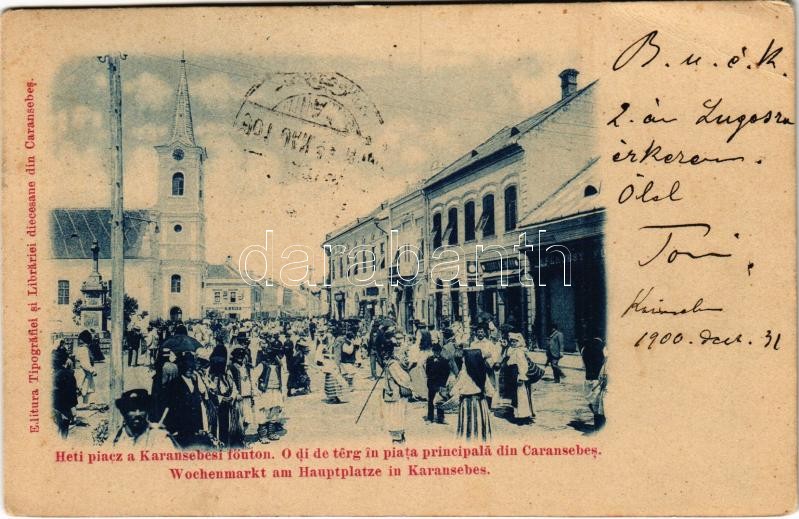 B. u. é. k.
2.-án Lugosra
érkezem.
Ölel
Toni
1900. dec. 31
Editura Tipografiei și Librăriei diecesane din Caransebeș.
darabanth.com
Heti piacz a Karansebesi főúton. O di de têrg în piața principală din Caransebeș.
Wochenmarkt am Hauptplatze in Karansebes.